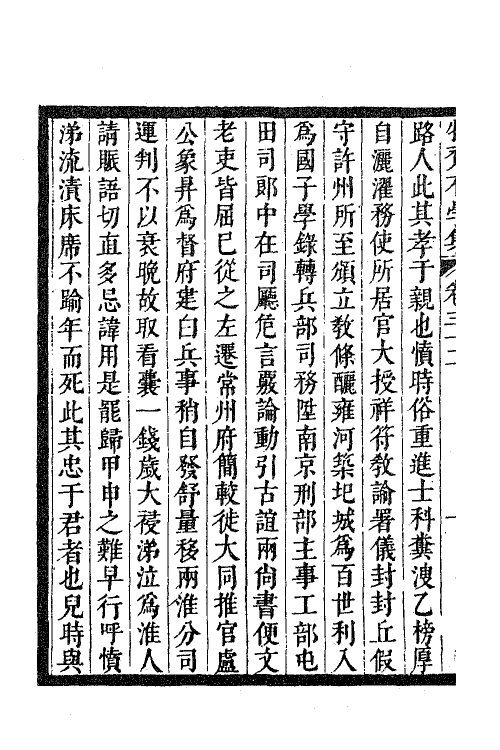 卷三十二
路人此其孝于親也憤時俗重進士科糞溲乙榜厚
自灑濯務使所居官大授祥符教諭署儀封封丘假
守許州所至頒立教條釃雍河築圮城爲百世利入
爲國子學錄轉兵部司務陞南京刑部主事工部屯
田司郎中在司廳危言嚴論動引古誼兩尚書便文
老吏皆屈己從之左遷常州府簡較徙大同推官盧
公象昇爲督府建白兵事稍自發舒量移兩淮分司
運判不以衰晩故取看囊一錢歲大祲涕泣爲淮人
請賑語切直多忌諱用是罷歸甲申之難早行呼憤
涕流漬床席不踰年而死此其忠于君者也兒時與